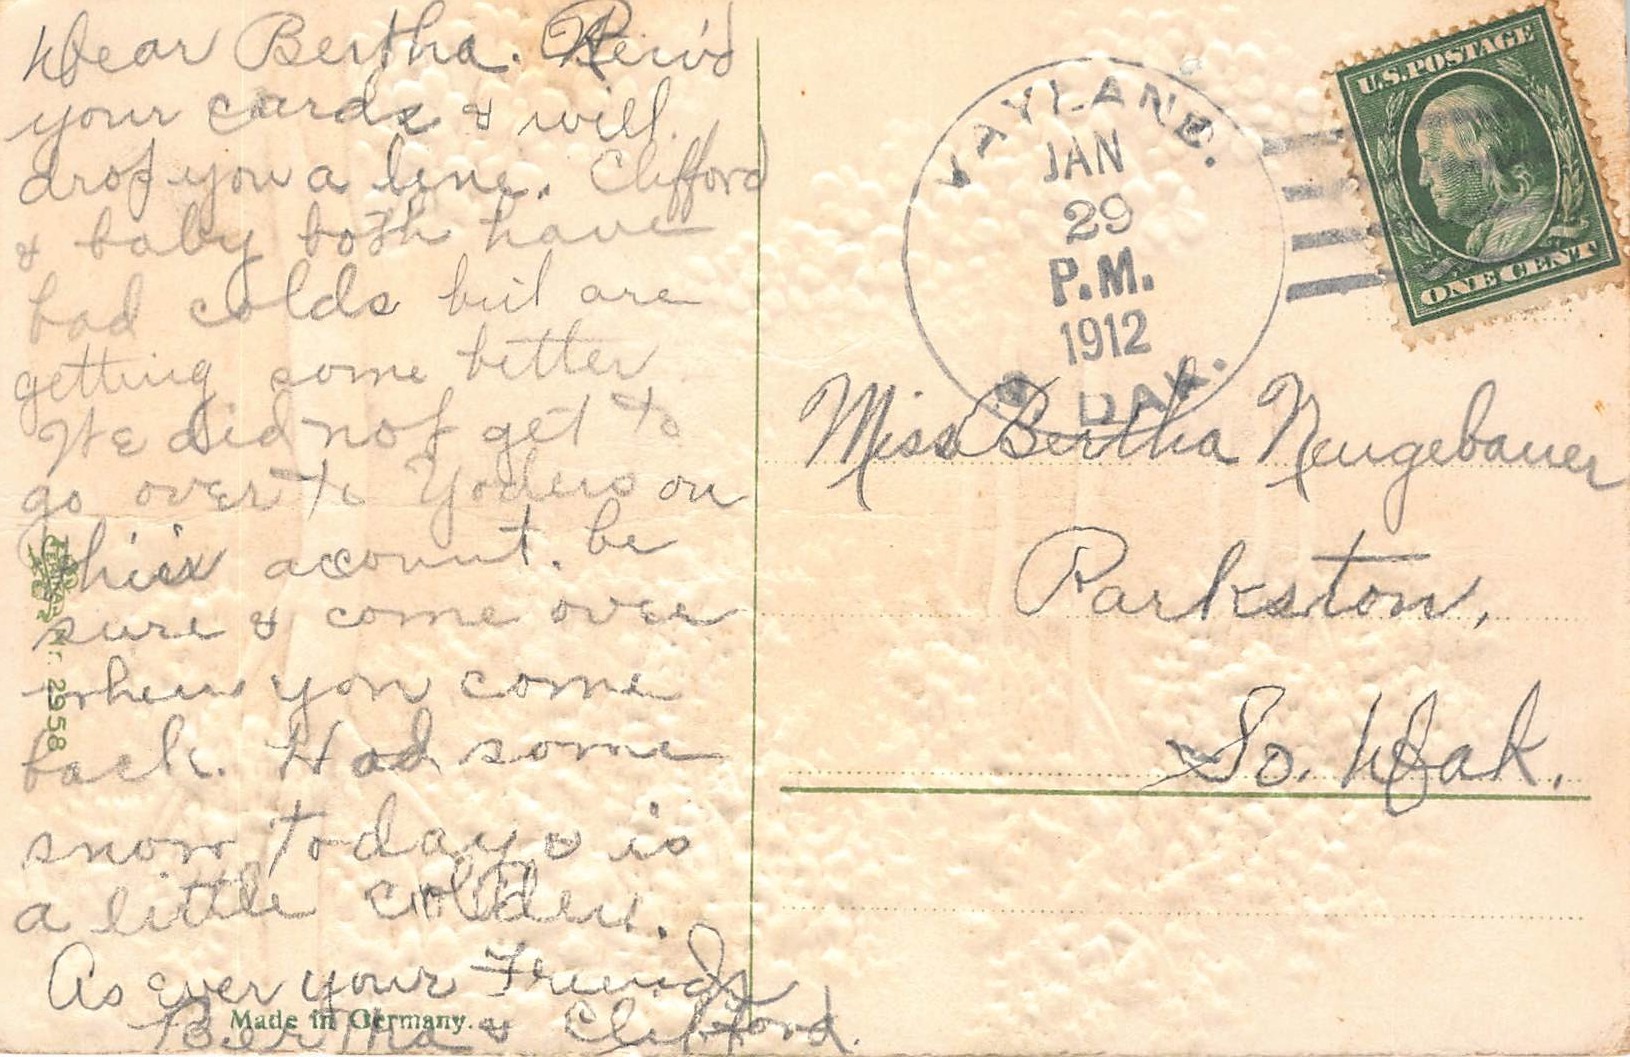 Dear Bertha. Reci'd
your cards & will
drop you a line. Clifford
& baby both have
bad colds but are
getting some better
We did not get to
go over to Yoders on
this acount. be
sure & come over
when you come
back. Had some
snow today & is
a little colder.
As ever your Friends
Bertha & Clifford.
Made in Germany.
Nr. 2958
VAYLAND.
JAN
29
P.M.
1912
DAK.
U.S. POSTAGE
ONE CENT
Miss Bertha Neugebauer
Parkston,
So. Dak.